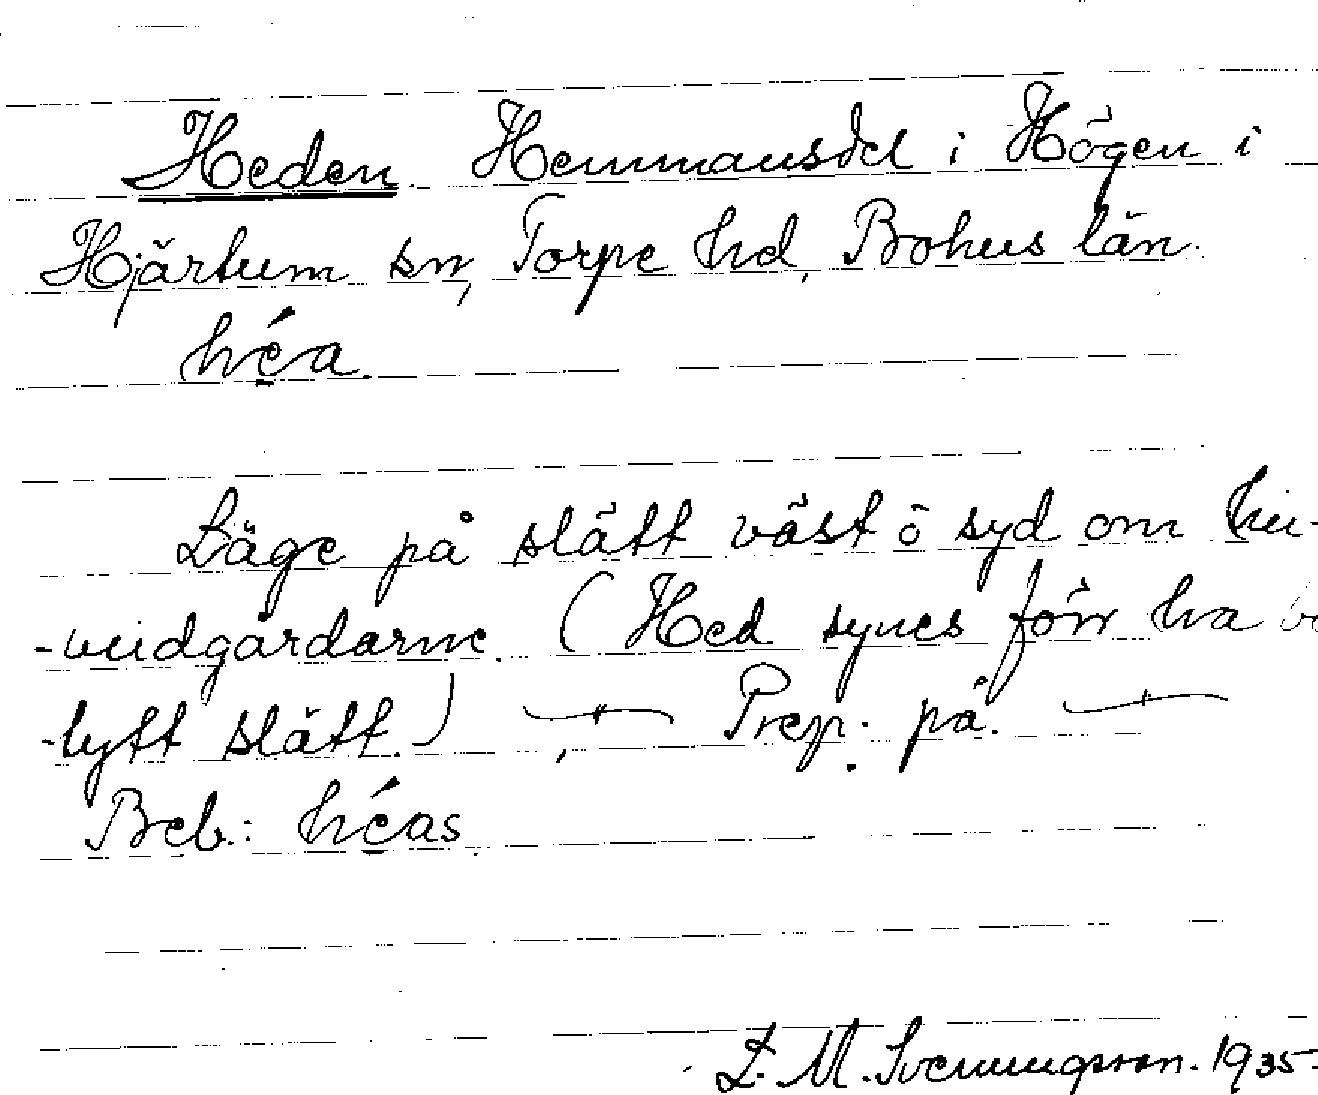 Heden. Hemmansdel i Högen i
Hjärtum sn, Torpe hd, Bohus län.
héa.
Läge på slätt väst ö syd om hu-
-vudgårdarne. (Hed synes förr ha be
-tytt slätt.) Prep. på.
Beb.: héas.
L. M. Svenungsson. 1935.